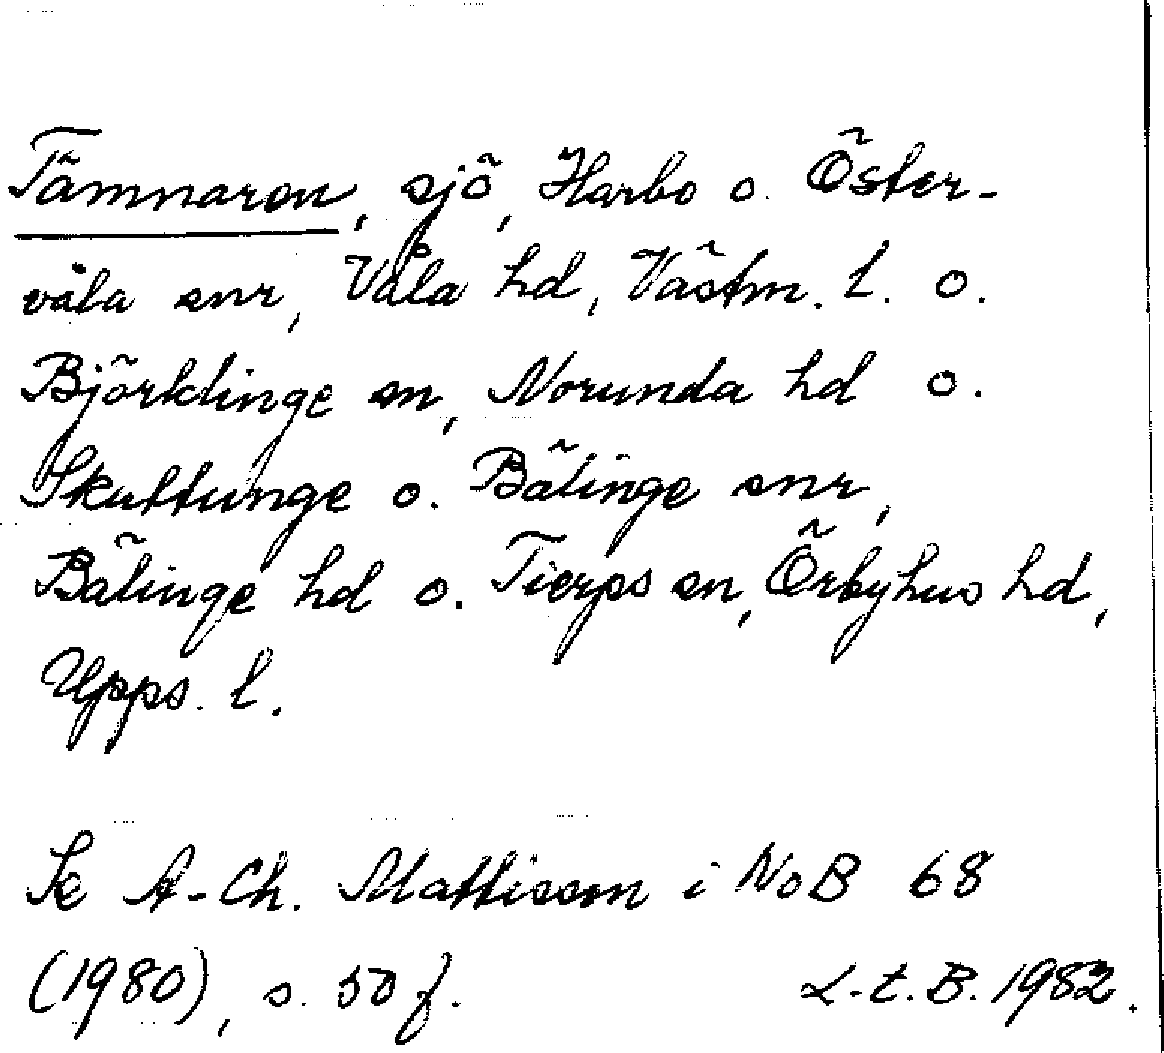 Tämnaren, sjö, Harbo o. Öster-
våla snr, Våla hd, Västm. l. o.
Björklinge sn, Norunda hd o.
Skuttunge o. Bälinge snr,
Bälinge hd o. Tierps sn, Örbyhus hd,
Upps. l.
Se A-Ch. Mattisson i NoB 68
(1980), s. 50 f. L.t.B. 1982.